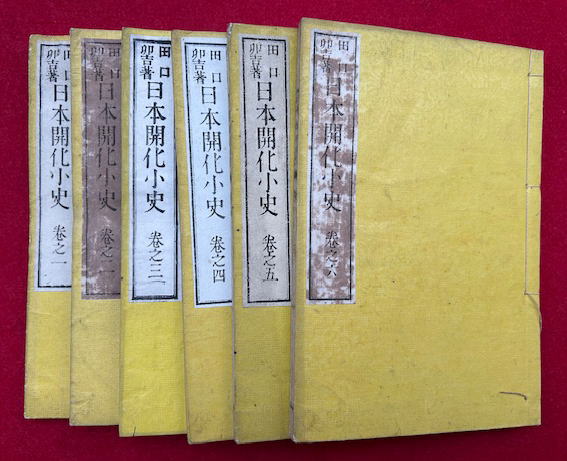 田口
卯吉著
日本開化小史 卷之一
田口
卯吉著
日本開化小史 卷之二
田口
卯吉著
日本開化小史 卷之三
田口
卯吉著
日本開化小史 卷之四
田口
卯吉著
日本開化小史 卷之五
田口
卯吉著
日本開化小史 卷之六